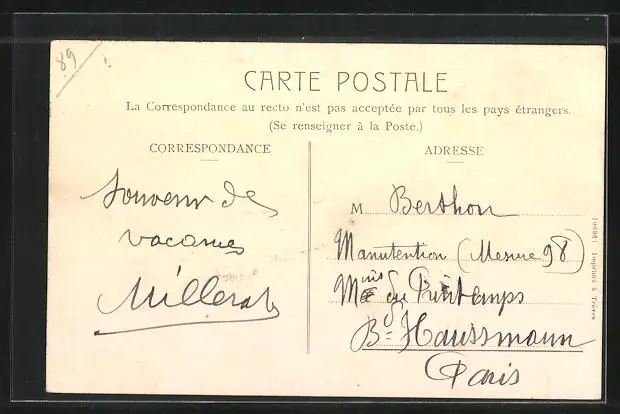 89
CARTE POSTALE
La Correspondance au recto n'est pas acceptée par tous les pays étrangers.
(Se renseigner à la Poste.)
CORRESPONDANCE
ADRESSE
Souvenir de
vacances
Millerat
M. Berthon
Manutention (Mesure 98)
Mins du Printemps
Bd Haussmann
Paris
Imprimé à Trèves